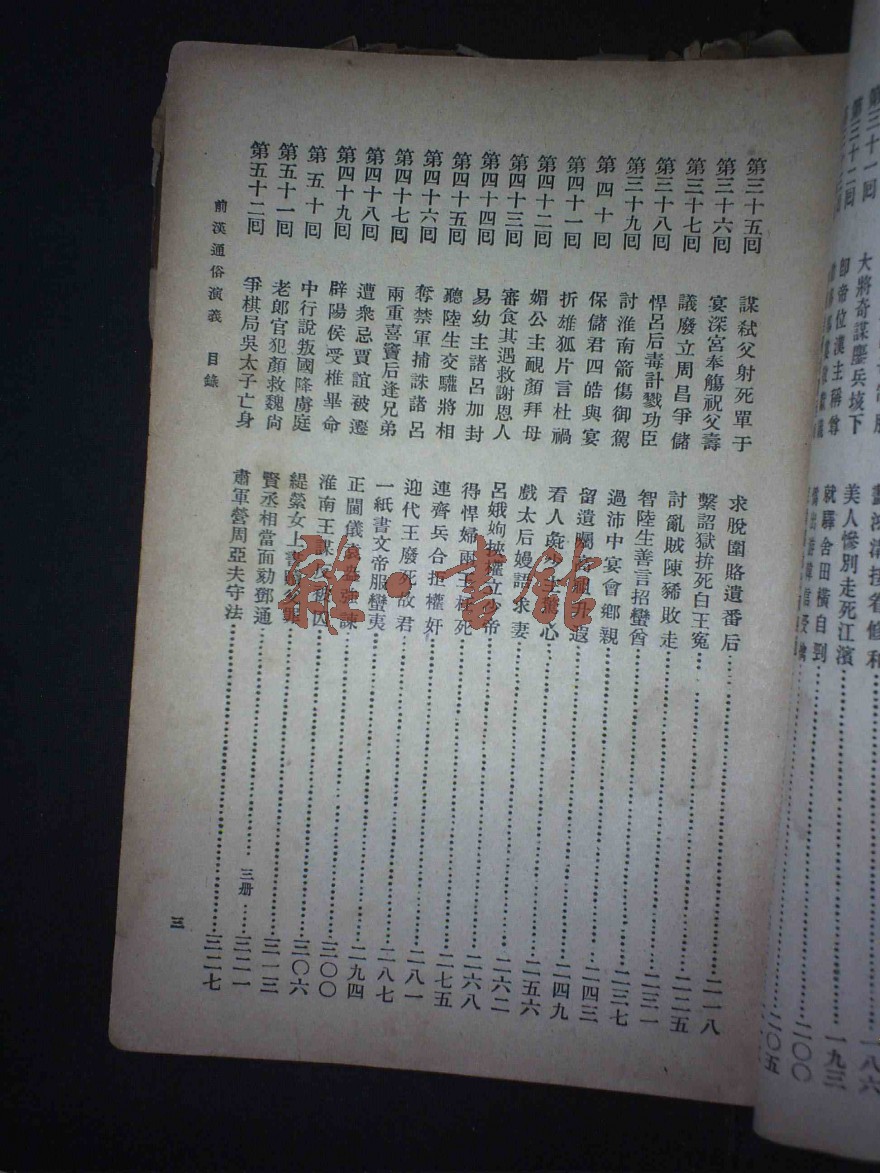 第三十五回 謀弒父射死單于 求脫圍賂遺番后 二一八
第三十六回 宴深宮奉觴祝父壽 繫詔獄拚死白王冤 二二五
第三十七回 議廢立周昌爭儲 討亂賊陳豨敗走 二三一
第三十八回 悍呂后毒計戮功臣 智陸生善言招蠻酋 二三七
第三十九回 討淮南箭傷御駕 過沛中宴會鄉親 二四三
第四十回 保儲君四皓與宴 留遺囑 升遐 二四九
第四十一回 折雄狐片言杜禍 看人彘少主 心 二五六
第四十二回 媚公主靦顏拜母 戲太后嫚語求妻 二六二
第四十三回 審食其遇救謝恩人 呂娥姁挾權立少帝 二六八
第四十四回 易幼主諸呂加封 得悍婦兩王枉死 二七五
第四十五回 聽陸生交驩將相 連齊兵合拒權奸 二八一
第四十六回 奪禁軍捕誅諸呂 迎代王廢死故君 二八七
第四十七回 兩重喜竇后逢兄弟 一紙書文帝服蠻夷 二九四
第四十八回 遭衆忌賈誼被遷 正閫儀袁盎強諫 三〇〇
第四十九回 辟陽侯受椎畢命 淮南王謀反 囚 三〇六
第五十回 中行說叛國降虜庭 緹縈女上書 父罪 三一三
第五十一回 老郎官犯顏救魏尙 賢丞相當面劾鄧通 三二一
第五十二回 爭棋局吳太子亡身 肅軍營周亞夫守法 三二七
三册
前漢通俗演義 目錄
三
雜·書館
第三十一回 大將奇謀鏖兵垓下 美人慘別走死江濱 一九三
第三十二回 卽帝位漢主稱尊 就驛舍田橫自刭 二〇〇
二〇五
一八六